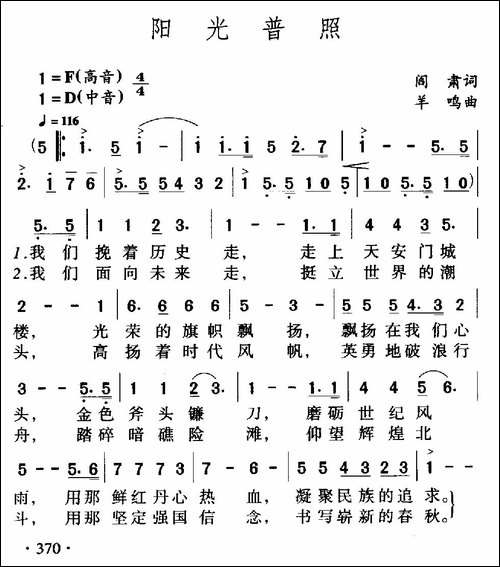 阳光普照
1=F(高音) 4/4
1=D(中音)
阎肃词
羊鸣曲
♩=116
(5 ‖: 1· 5 1 | 1 - - 1 | 1 1·1 5 2·7 | 1 - - 5·5 |
2· 1 7 6 | 5·5 5 4 3 2 | 1 5·5 1 0 5 | 1 0 0 5·5 1 0) |
5·5 | 1 1 1 2 3· | 1 - - 1·1 | 4 4 3 5· |
1.我们 挽着历史 走, 走上 天安门城
2.我们 面向未来 走, 挺立 世界的潮
2 - - 1 | 6· 6 6 6 | 5 - 3 - | 5 5 5 4·3 2 |
楼, 光荣的旗帜飘扬, 飘扬在我们心
头, 高扬着时代风帆, 英勇地破浪行
3 - - 5·5 | 1 1 1 2 3· | 1 - - 1·1 | 4 4 4 5 6· |
头, 金色斧头镰刀, 磨砺世纪风
舟, 踏碎暗礁险滩, 仰望辉煌北
5 - - 5·6 | 7 7 7 3 | 6 - - 6 | 5 5 5 3·2 3 | 1 - -
雨, 用那鲜红丹心热血, 凝聚民族的追求。
斗, 用那坚定强国信念, 书写崭新的春秋。
·370·